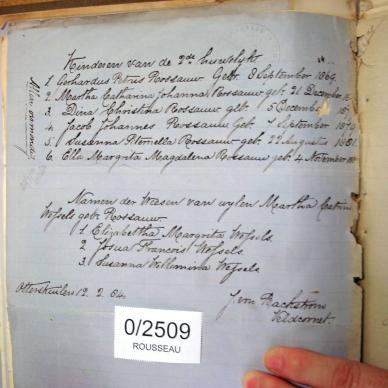 Kinderen van de 2de huwelijk
1 Gerhardus Petrus Rossauw Gebr 8 September 1869
2 Martha Catharina Johanna Rossauw geb 21 December
3 Dina Christina Rossouw geb 5 December
4 Jacob Johannes Rossauw Geb 7 September 1879
5 Susanna Petronella Rossauw geb 22 Augustus 1881
6 Ella Margrita Magdalena Rossauw geb 4 November
Namen der Weesen van wylen Martha Catrina
Wessels geb Rossauw
1 Elizabettha Margrita Wessels
2 Josua Francois Wessels
3 Susanna Wellumina Wessels
12 . 2 . 84
J von Backstrom
Veldcornet
0/2509
ROUSSEAU